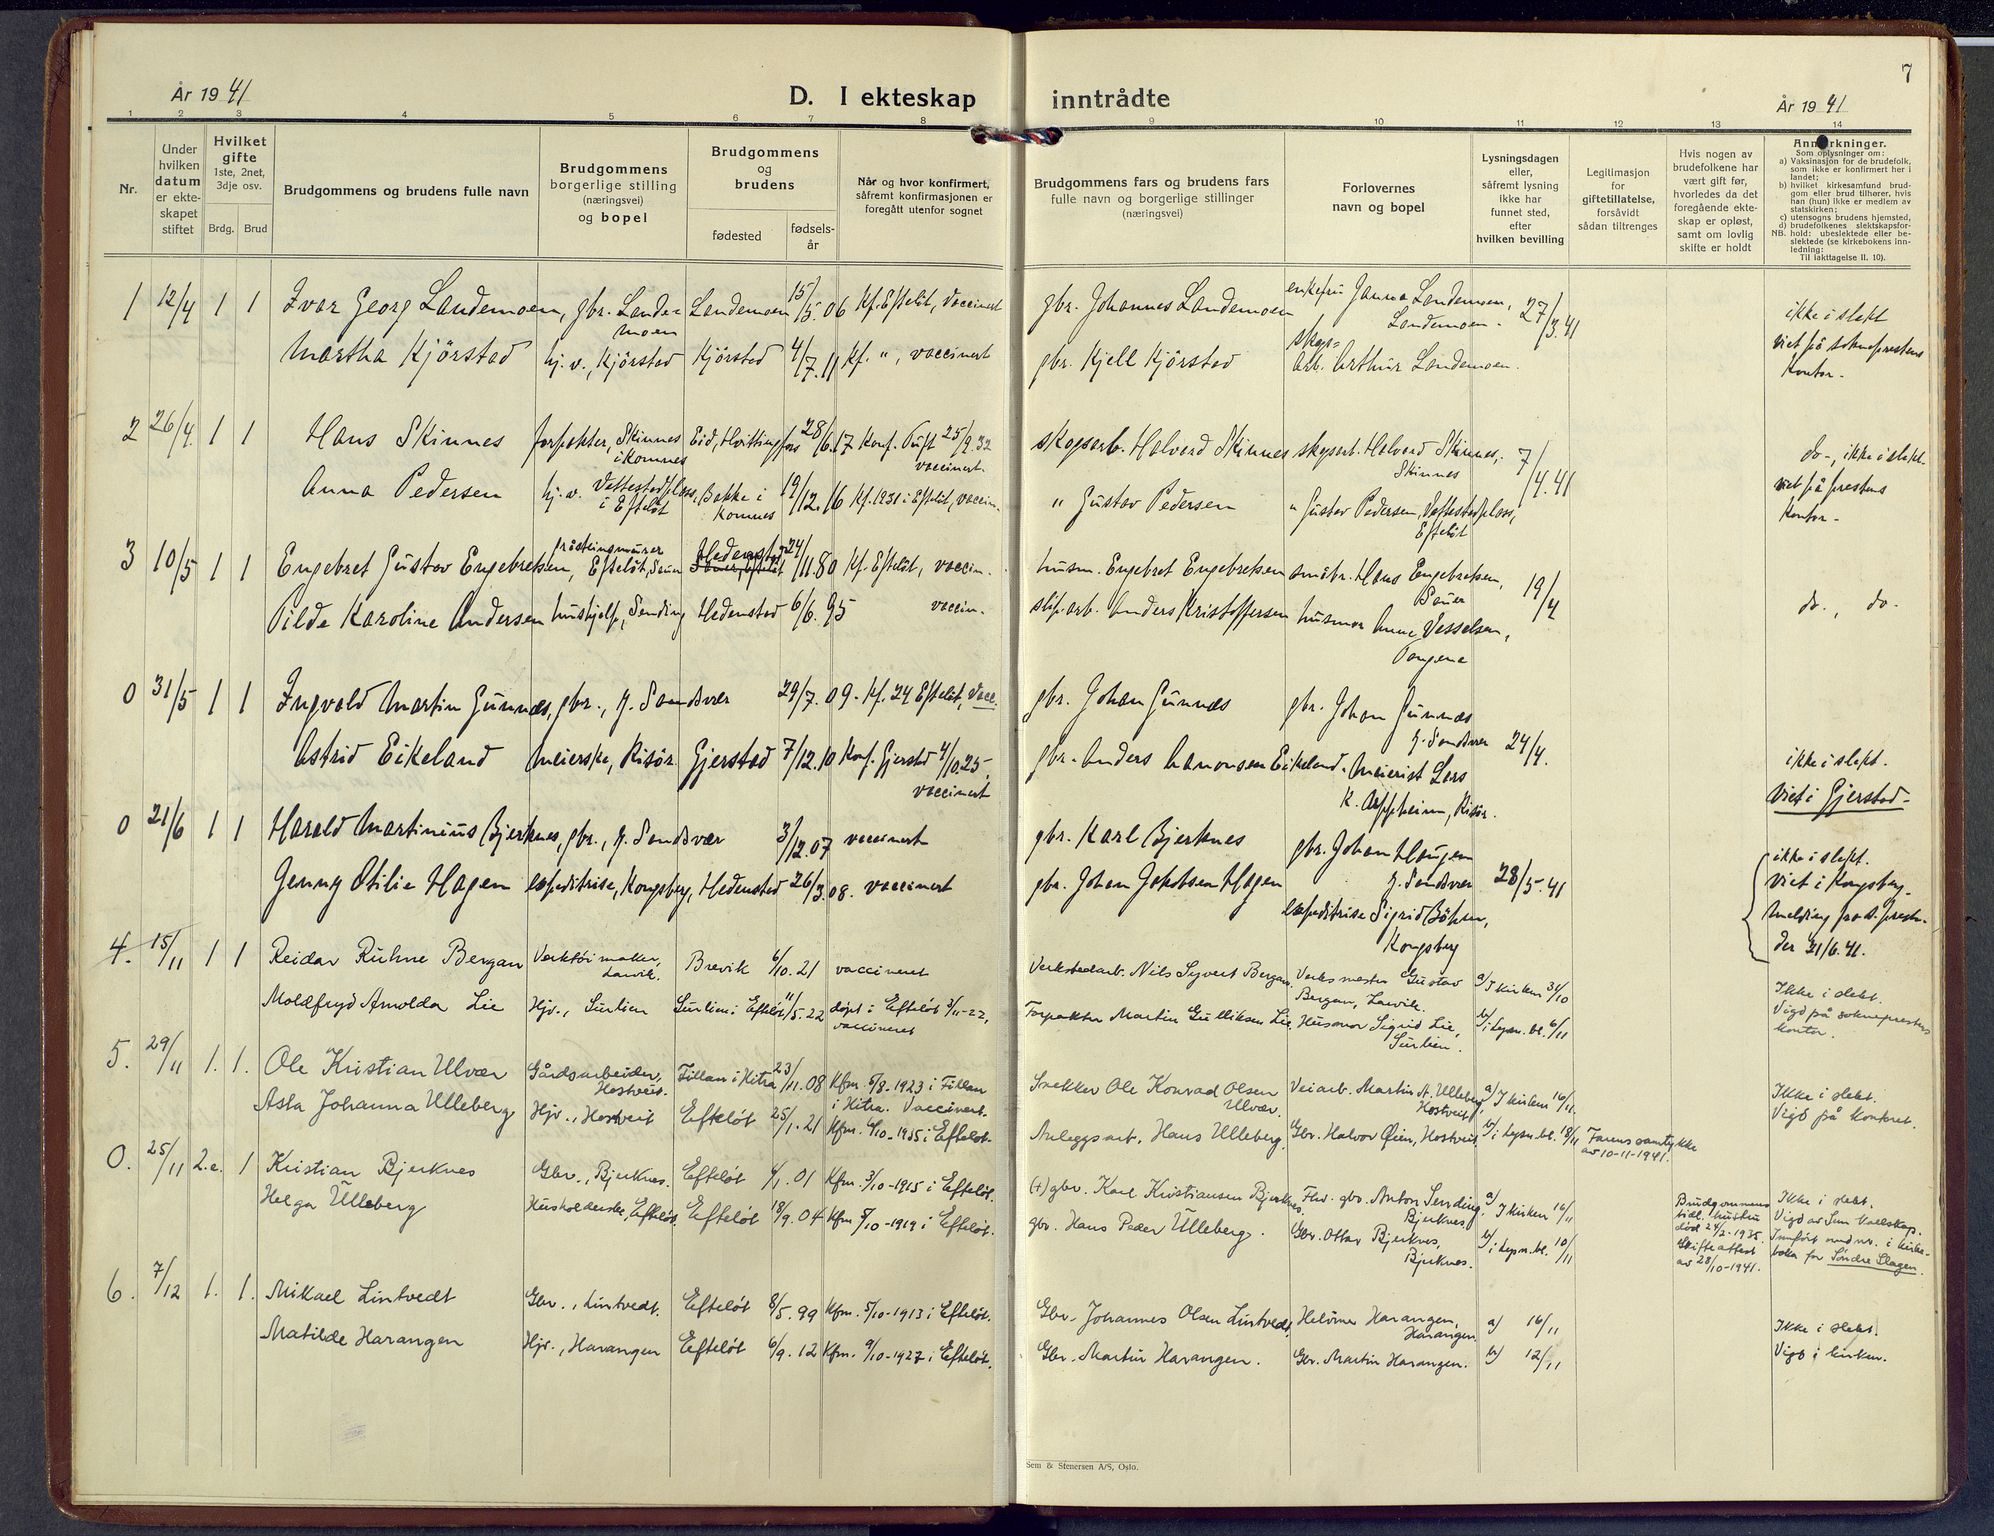 7
År 1941
D. I ekteskap inntrådte
År 1941
1 2 3 4 5 6 7 8 9 10 11 12 13 14
Nr.
Under hvilken datum er ekteskapet stiftet
Hvilket gifte
1ste, 2net, 3dje osv.
Brdg. Brud
Brudgommens og brudens fulle navn
Brudgommens borgerlige stilling (næringsvei) og bopel
Brudgommens og brudens
fødested
fødselsår
Når og hvor konfirmert, såfremt konfirmasjonen er foregått utenfor sognet
Brudgommens fars og brudens fars fulle navn og borgerlige stillinger (næringsvei)
Forlovernes navn og bopel
Lysningsdagen eller, såfremt lysning ikke har funnet sted, efter hvilken bevilling
Legitimasjon for giftetillatelse, forsåvidt sådan tiltrenges
Hvis nogen av brudefolkene har vært gift før, hvorledes da det foregående ekteskap er opløst, samt om lovlig skifte er holdt
Anmerkninger.
Som oplysninger om:
a) Vaksinasjon for de brudefolk, som ikke er konfirmert her i landet;
b) hvilket kirkesamfund brudgom eller brud tilhører, hvis han (hun) ikke er medlem av statskirken;
c) utensogns brudens hjemsted,
d) brudefolkenes slektskapsforhold: ubeslektede eller beslektede (se kirkebokens innledning:
NB.
Til iakttagelse II. 10).
1 12/4 1 1 Ivar Georg Landemoen, gbr. Landemoen Landemoen 15/5.06 Kf. Efteløt, vaccinert gbr. Johannes Landemoen enkefru Janna Landemoen, Landemoen. 27/3.41 ikke i slekt
Martha Kjørstad hj.v., Kjørstad Kjørstad 4/7.11 Kf. ", vaccinert gbr. Kjell Kjørstad skogsarb. Arthur Landemoen. viet på sokneprestens kontor.
2 26/4 1 1 Hans Skinnes forpakter, Skinnes i Komnes Eid, Hvittingfoss 28/6.17 Konf. Tuft 25/9.32 vaccinert. skogsarb. Halvard Skinnes skogsarb. Halvard Skinnes, Skinnes 7/4.41 do-, ikke i slekt.
Anna Pedersen hj.v. Vettestadplass, i Efteløt Bakke i Komnes 19/12.16 Kf. 1931 i Efteløt, vaccin. " Gustav Pedersen " Gustav Pedersen, Vettestadplass, Efteløt viet på prestens kontor-
3 10/5 1 1 Engebret Gustav Engebretsen, gråsteinsmurer Efteløt, Sauer Hedenstad Sauer, Efteløt 24/11.80 Kf. Efteløt, vaccin. husm. Engebret Engebretsen småbr. Hans Engebretsen, Sauer 19/4 do., do.
Tilde Karoline Andersen hushjelp, Sending Hedenstad 6/6.95 vaccin. slip.arb. Anders Kristoffersen husmor Anne Vesselsen, Tangene
0 31/5 1 1 Ingvald Martin Gunnæs, gbr., Y. Sandsvær 29/7.09. Kf. 24 Efteløt, vacc. gbr. Johan Gunnæs gbr. Johan Gunnæs Y. Sandsvær 24/4.
Astrid Eikeland meierske, Risør Gjerstad 7/12.10 Konf. Gjerstad 4/10.25, vaccinert gbr. Anders Aanonsen Eikeland. Meierist Lars K. Asppheim, Risør. ikke i slekt. Viet i Gjerstad.
0 21/6 1 1 Harald Martinius Bjerknes, gbr., Y. Sandsvær 3/12.07 vaccinert gbr. Karl Bjerknes gbr. Johan Haugen Y. Sandsvær 28/5.41 ikke i slekt. viet i Kongsberg.
Jenny Otilie Hagen expeditrise, Kongsberg, Hedenstad 26/3.08. vaccinert gbr. Johan Jakobsen Hagen expeditrise Sigrid Bøhsen, Kongsberg melding fra s.presten der 21/6.41.
4. 15/11 1 1 Reidar Ruhne Bergan Verktøimaker, Larvik. Brevik 6/10.21 vaccineret Verkstedarb. Nils Syvert Bergan. Verksmester Gustav Bergan, Larvik. a) I kirken 31/10 Ikke i slekt.
Moldfryd Arnolda Lie Hjv., Surlien Surlien i Efteløt 11/5.22 døpt i Efteløt 3/11-22, vaccineret Forpakter Martin Gulliksen Lie. Husmor Sigrid Lie, Surlien. b) i lysn.bl. 6/11 Vigd på sokneprestens kontor.
5. 29/11 1. 1. Ole Kristian Ulvær Gårdsarbeider, Hostveit. Fillan i Hitra 23/11.08 Kfm. 5/8.1923 i Fillan i Hitra. Vaccinert. Snekker Ole Konrad Olsen Ulvær. Veiarb. Martin A. Ulleberg, Hostveit a) I kirken 16/11. Ikke i slekt.
Asta Johanna Ulleberg Hjv., Hostveit Efteløt 25/1.21 Kfm. 6/10-1935 i Efteløt. Anleggsarb. Hans Ulleberg. Gbr. Halvor Øien, Hostveit b) i lysn.bl. 18/11 Farens samtykke av 10-11-1941. Vigd på kontoret.
0. 25/11 2.e. 1 Kristian Bjerknes Gbr., Bjerknes. Efteløt 4/1.01 Kfm. 3/10-1915 i Efteløt. (+) gbr. Karl Kristiansen Bjerknes. Fhv. gbr. Anton Sending, Bjerknes a) I kirken 16/11 Brudgommens tidl. hustru død 24/2-1935. Skifteattest av 28/10-1941. Ikke i slekt.
Helga Ulleberg Husholderske, Efteløt. Efteløt 18/9.04 Kfm. 5/10-1919 i Efteløt. gbr. Hans Peder Ulleberg. Gbr. Ottar Bjerknes, Bjerknes. b) i lysn.bl. 10/11 Vigd av Sem Innført med nr. i kirkeboka for Søndre Slagen.
6. 7/12 1. 1. Mikael Lintvedt Gbr., Lintvedt. Efteløt 8/5.99 Kfm. 5/10-1913 i Efteløt. Gbr. Johannes Olsen Lintvedt. Harangen, Harangen a) 16/11 Ikke i slekt.
Matilde Harangen Hjv., Harangen Efteløt 6/9.12 Kfm. 9/10-1927 i Efteløt. Gbr. Martin Harangen. Gbr. Martin Harangen. b) 12/11 Vigd i kirken.
Sem & Stenersen A/S, Oslo.